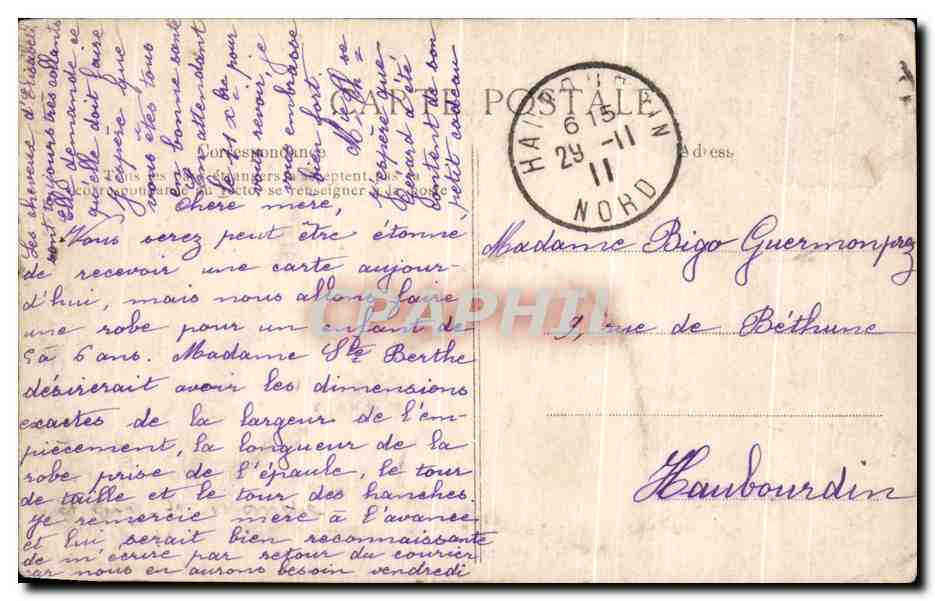 CARTE POSTALE
Correspondance
Adresse
HAUBOURDIN
6 15
29 -11
11
NORD
CPAPHIL
Chère mère,
Vous serez peut être étonné
de recevoir une carte aujour-
d'hui, mais nous allons faire
une robe pour un enfant de
5 à 6 ans. Madame Ste Berthe
désirerait avoir les dimensions
exactes de la largeur de l'em-
piècement, la longueur de la
robe prise de l'épaule, le tour
de taille et le tour des hanches.
Je remercie mère à l'avance
et lui serait bien reconnaissante
de m'écrire par retour du courrier
car nous en aurons besoin vendredi
Les cheveux d'Elisabeth
sont toujours très collants
Elle demande ce
qu'elle doit faire
J'espère que
vous êtes tous
en bonne santé
En attendant
le 11 Xbre pour
vous revoir, je
vous embrasse
bien fort.
J'espère que
Gérard a été
content de son
petit cadeau
Madame Bigo Guermonprez
9, rue de Béthune
Haubourdin